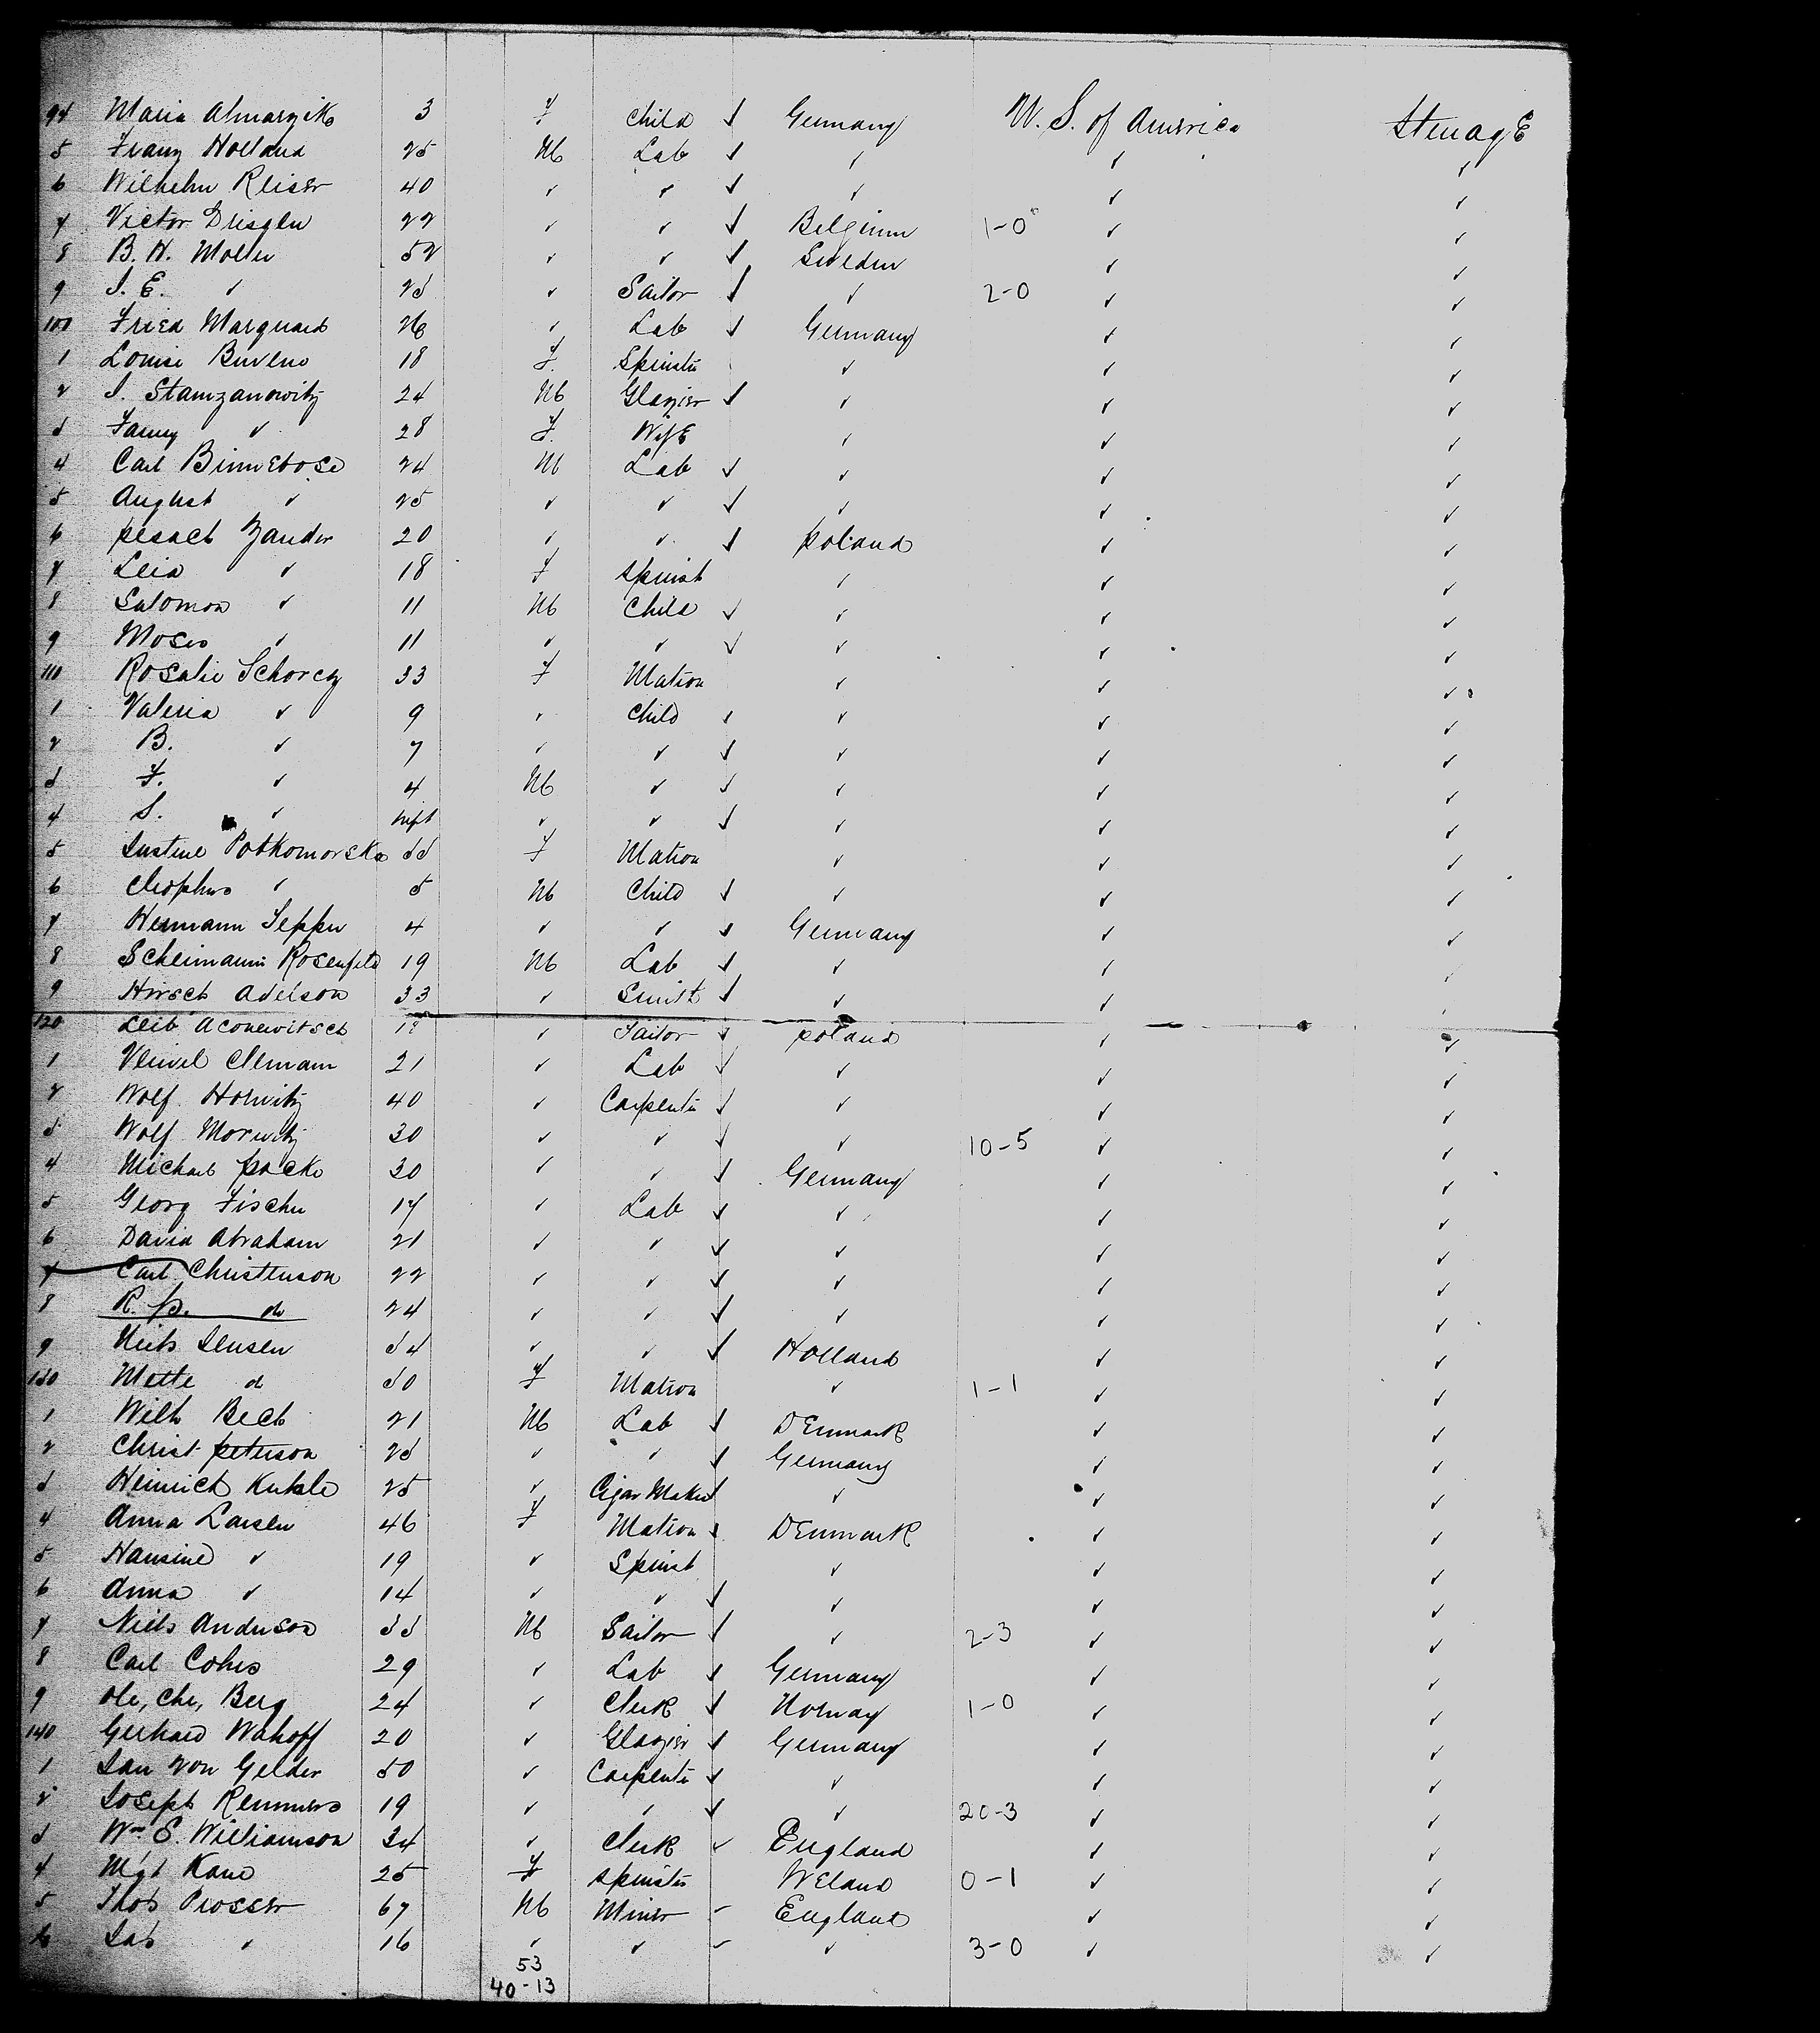 94 Maria Almarzik 3 F Child ✓ Germany U. S. of America Steerage
5 Franz Holland 25 M Lab ✓ ✓ ✓ ✓
6 Wilhelm Reiser 40 ✓ ✓ ✓ ✓ ✓ ✓
7 Victor 22 ✓ ✓ ✓ Belgium 1-0 ✓ ✓
8 B. H. Moller 52 ✓ ✓ ✓ Sweden ✓ ✓
9 J. E. ✓ 23 ✓ Sailor ✓ ✓ 2-0 ✓ ✓
100 Fried Marquard 26 ✓ Lab ✓ Germany ✓ ✓
1 Louise 18 F. Spinster ✓ ✓ ✓
2 J. Stamzanowitz 24 M Glazier ✓ ✓ ✓ ✓
3 Fanny ✓ 28 F. Wife ✓ ✓ ✓
4 Carl Binnebose 24 M Lab ✓ ✓ ✓ ✓
5 August ✓ 25 ✓ ✓ ✓ ✓ ✓ ✓
6 Pesach Zander 20 ✓ ✓ ✓ Poland ✓ ✓
7 Leia ✓ 18 F Spinst ✓ ✓ ✓
8 Salomon ✓ 11 M Child ✓ ✓ ✓ ✓
9 Moses ✓ 11 ✓ ✓ ✓ ✓ ✓ ✓
110 Rosalie Schorcz 33 F Matron ✓ ✓ ✓
1 Valeria ✓ 9 ✓ Child ✓ ✓ ✓ ✓
2 B. ✓ 7 ✓ ✓ ✓ ✓ ✓ ✓
3 F. ✓ 4 M ✓ ✓ ✓ ✓ ✓
4 S. ✓ Inft ✓ ✓ ✓ ✓ ✓ ✓
5 Justine Potkomorska 33 F Matron ✓ ✓ ✓
6 Cleophus ✓ 5 M Child ✓ ✓ ✓ ✓
7 Hermann Seppen 4 ✓ ✓ ✓ Germany ✓ ✓
8 Scheimann Rosenfeld 19 M Lab ✓ ✓ ✓ ✓
9 Hirsch Adelson 33 ✓ Smith ✓ ✓ ✓ ✓
120 Leib Aconewitsch 18 ✓ Tailor ✓ Poland ✓ ✓
1 Clemann 21 ✓ Lab ✓ ✓ ✓ ✓
2 Wolf Horwitz 40 ✓ Carpenter ✓ ✓ ✓ ✓
3 Wolf Morwitz 30 ✓ ✓ ✓ ✓ 10-5 ✓ ✓
4 Michael Packo 30 ✓ ✓ ✓ Germany ✓ ✓
5 Georg Fischer 17 ✓ Lab ✓ ✓ ✓ ✓
6 David Abraham 21 ✓ ✓ ✓ ✓ ✓ ✓
7 Carl Christenson 22 ✓ ✓ ✓ ✓ ✓ ✓
8 R. P. do 24 ✓ ✓ ✓ ✓ ✓ ✓
9 Niels Jensen 34 ✓ ✓ ✓ Holland ✓ ✓
130 Mette d 30 F Matron ✓ 1-1 ✓ ✓
1 Wilh Bech 21 M Lab ✓ Denmark ✓ ✓
2 Christ Peterson 23 ✓ ✓ ✓ Germany ✓ ✓
3 Heinrich Kuhle 25 ✓ Cigar Maker ✓ ✓ ✓ ✓
4 Anna Larsen 46 F Matron ✓ Denmark ✓ ✓
5 Hansine ✓ 19 ✓ Spinst ✓ ✓ ✓
6 Anna ✓ 14 ✓ ✓ ✓ ✓ ✓ ✓
7 Niels Anderson 33 M Sailor ✓ ✓ 2-3 ✓ ✓
8 Carl Cohrs 29 ✓ Lab ✓ Germany ✓ ✓
9 Ole, Chr, Berg 24 ✓ Clerk ✓ Norway 1-0 ✓ ✓
140 Gerhard Wahoff 20 ✓ Glazier ✓ Germany ✓ ✓
1 Jan von Gelder 50 ✓ Carpenter ✓ ✓ ✓ ✓
2 Joseph Remmers 19 ✓ ✓ ✓ ✓ 20-3 ✓ ✓
3 Wm. E. Williamson 34 ✓ Clerk ✓ England ✓ ✓
4 Mgt Kane 25 F Spinster Ireland 0-1 ✓ ✓
5 Thos Prosser 67 M Miner - England ✓ ✓
6 Jas ✓ 16 ✓ ✓ - ✓ 3-0 ✓ ✓
53
40-13